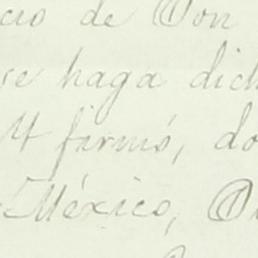 cio de Don
se haga dich
M firmó, do
México,